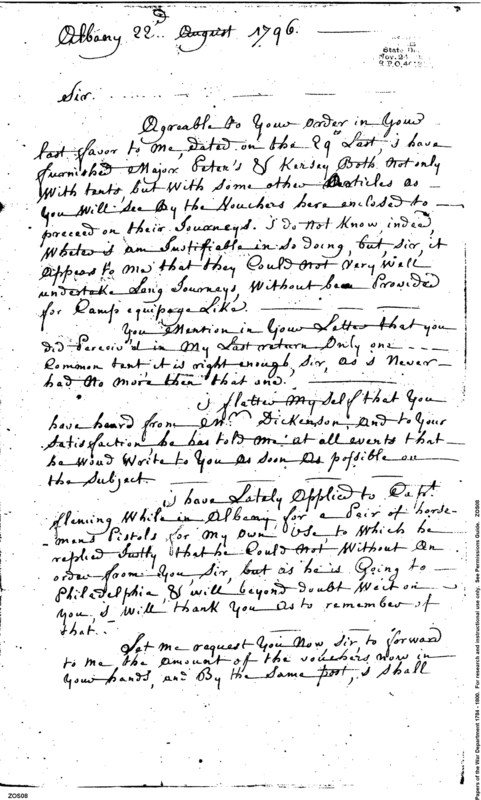 Albany 22d August 1796.
State De
Nov. 24
Sir.
Agreable to Your order in Your
last favor to me, dated on the 29th Last, i have
furnished Major Peter's & Kersey Both Not only
With tents but With Some other Articles as
You Will See By the Vouchers here enclosed to
preceed on their Journeys. i do Not Know, indeed
Wheter i am Justifiable in So doing, but, Sir, it
Appears to Me that they Could Not Very Well
undertake Long Journeys, Without bee Provided
for Camp equipage Like.
You Mention in Your Letter that you
did Perceiv'd in My Last return Only one
Common tent it is right enough, Sir, as i Never
had No more then that one.
i flatter My Self that You
have heard from Mr. Dickenson, and to Your
Satisfaction he has told Me; at all events that
he woud Write to You as Soon As possible on
the Subject
i have Lately Applied to Capt.
fleming While in Albany, for a Pair of horse-
mens Pistols for My own Use, to Which he
replied Justly that he Could Not Without An
order from You, Sir, but as he is Going to
Philadelphia & will beyond doubt Weit on
You, i Will thank You As to remember of
that.
Let me request You Now Sir, to forward
to me the Amount of the vouchers now in
Your hands, and By the Same post, i Shall
ZOS08
Papers of the War Department 1784 - 1800. For research and instructional use only. See Permissions Guide. ZOS08